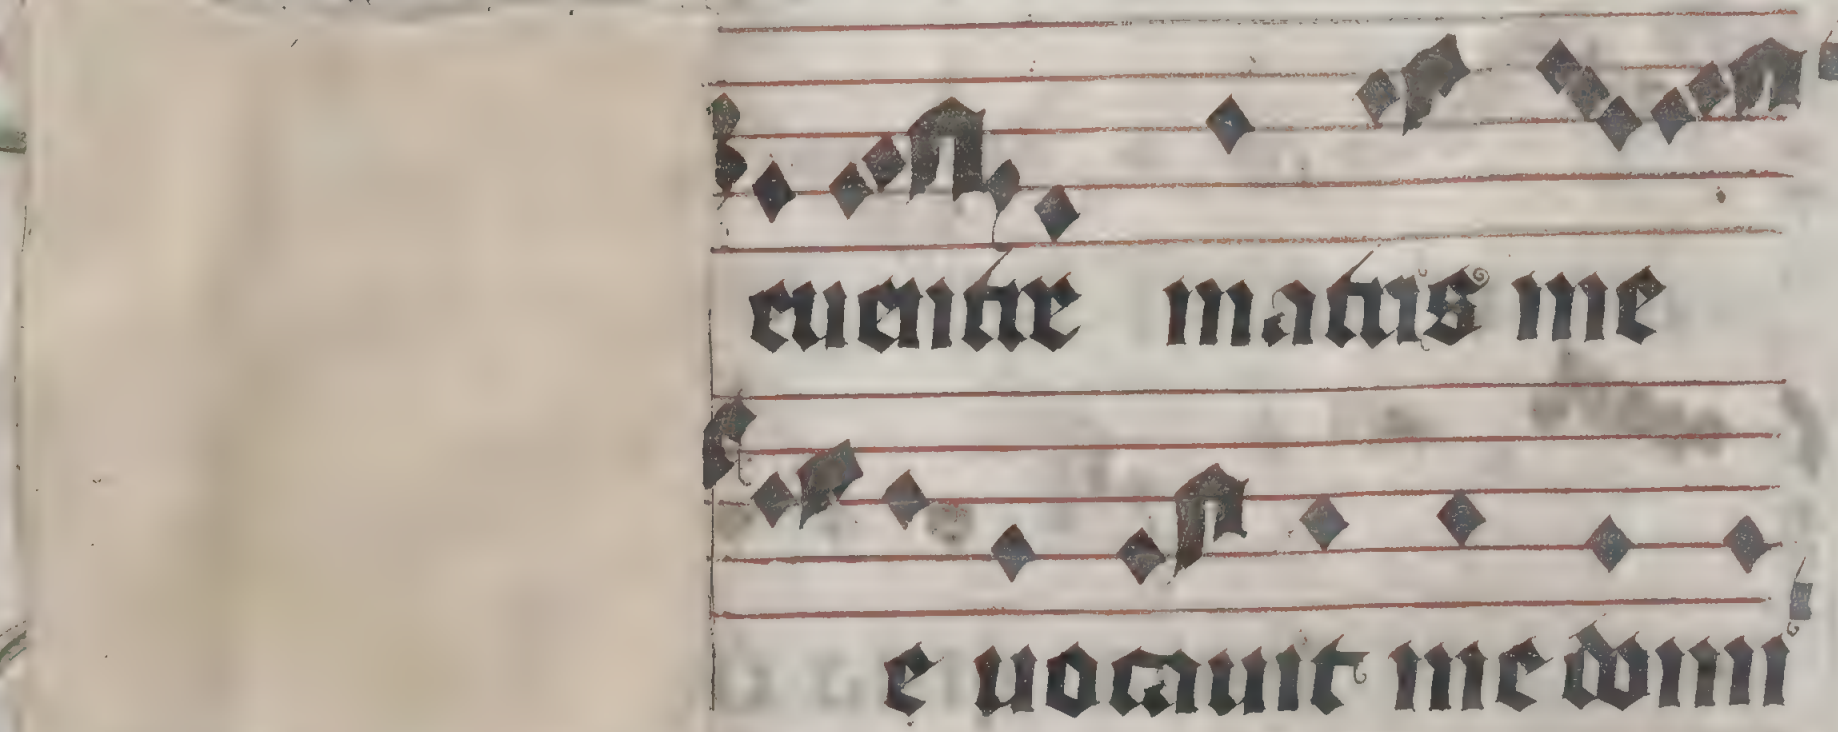 euentre matris me
e uocauit me domi